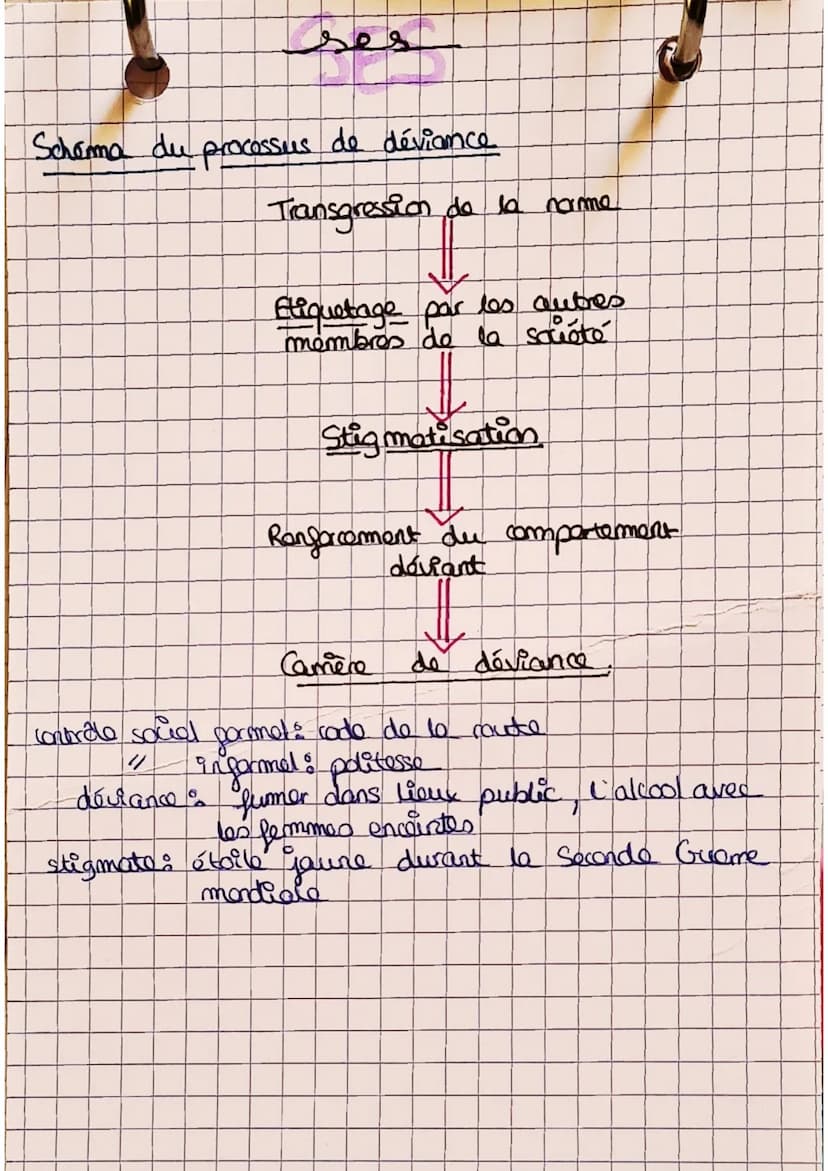 ses
SES
Schéma du processus de déviance
Transgression de la norme
Etiquetage par les autres
membres de la société
Stigmatisation
Renforcement du comportement
déviant
Carrière de déviance.
contrôle social formel : code de la route
// informel : politesse
déviance : fumer dans lieux public, l'alcool avec
les femmes enceintes
stigmate : étoile jaune durant la Seconde Guerre
mondiale